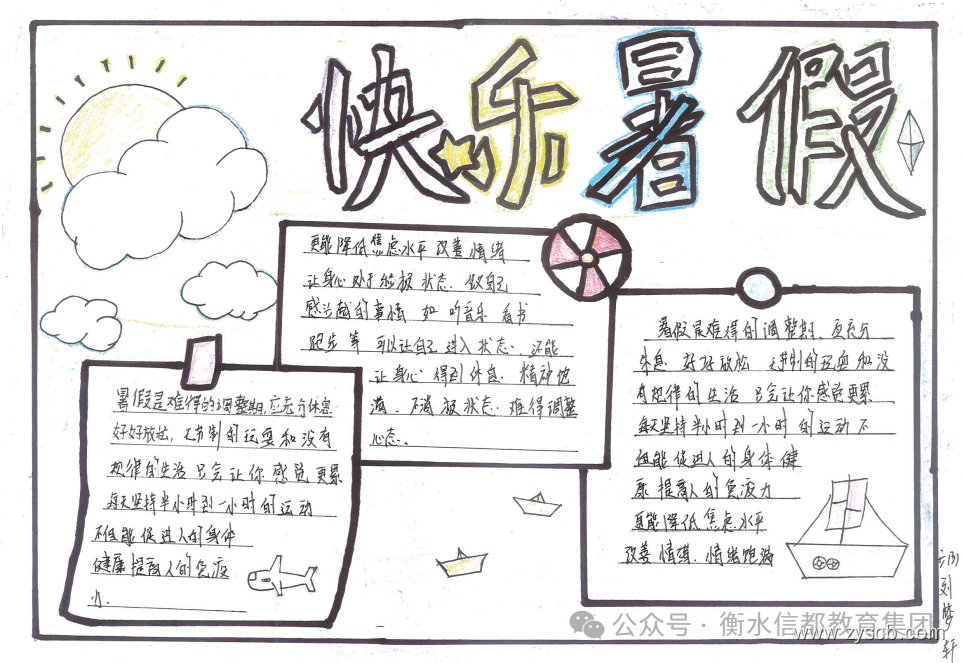 快乐暑假
更能降低焦虑水平 改善情绪
让身心处于积极状态. 做自己
感兴趣的事情 如 听音乐 看书
跑步等 可以让自己进入状态、还能
让身心 得到休息. 精神饱
满、不消极状态. 难得调整
心态、
暑假是难得的调整期, 应充分休息
好好放松, 无节制的玩耍和没有
规律的生活只会让你感觉更累
每天坚持半小时到一小时的运动
不但能促进人的身体
健康提高人的免疫
力.
暑假是难得的调整期 应充分
休息 好好放松 无节制的玩耍和没
有规律的生活 只会让你感觉更累
每天坚持半小时到一小时的运动不
但能促进人的身体健
康 提高人的免疫力
更能降低焦虑水平
改善情绪. 情绪饱满
刘梦轩
公众号·衡水信都教育集团
www.zyscb.com